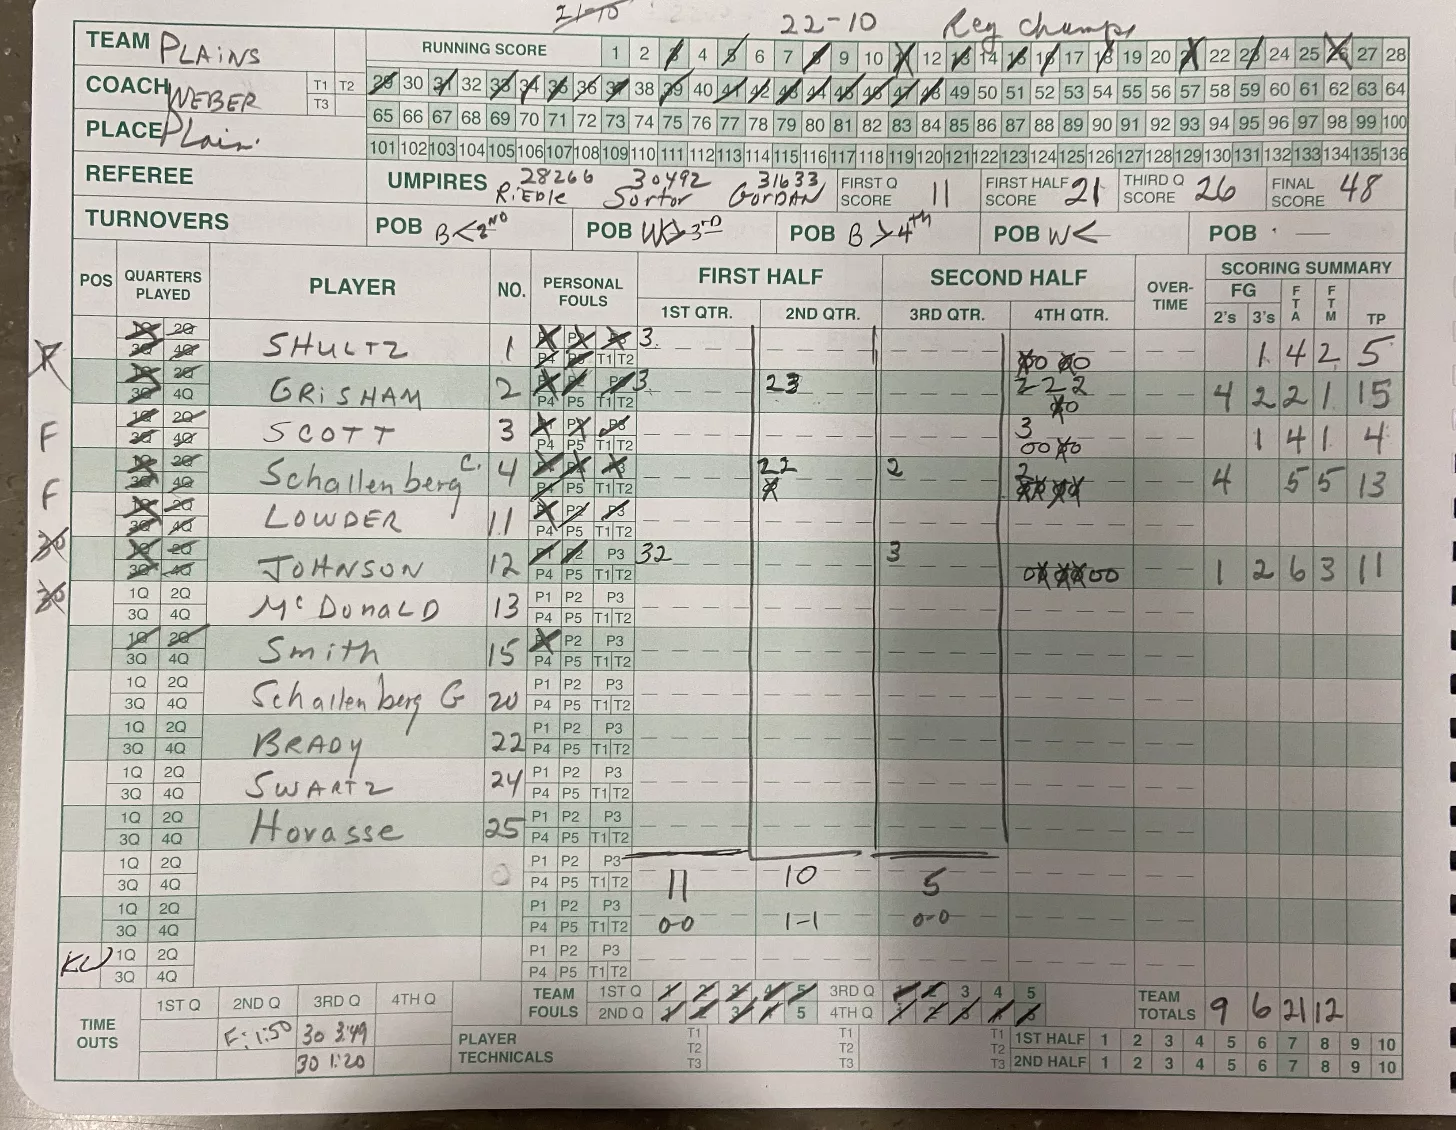 21-10
22-10 Reg Champs
TEAM PLAINS RUNNING SCORE 1 2 3 4 5 6 7 8 9 10 11 12 13 14 15 16 17 18 19 20 21 22 23 24 25 26 27 28
COACH WEBER T1 T2 T3 29 30 31 32 33 34 35 36 37 38 39 40 41 42 43 44 45 46 47 48 49 50 51 52 53 54 55 56 57 58 59 60 61 62 63 64
PLACE Plain. 65 66 67 68 69 70 71 72 73 74 75 76 77 78 79 80 81 82 83 84 85 86 87 88 89 90 91 92 93 94 95 96 97 98 99 100
101 102 103 104 105 106 107 108 109 110 111 112 113 114 115 116 117 118 119 120 121 122 123 124 125 126 127 128 129 130 131 132 133 134 135 136
REFEREE UMPIRES 28266 R. Eble 30492 Sortor 31633 GorDAN FIRST Q SCORE 11 FIRST HALF SCORE 21 THIRD Q SCORE 26 FINAL SCORE 48
TURNOVERS POB B< 2ND POB W> 3RD POB B > 4th POB W< POB · —
POS QUARTERS PLAYED PLAYER NO. PERSONAL FOULS FIRST HALF SECOND HALF OVER-TIME SCORING SUMMARY
1ST QTR. 2ND QTR. 3RD QTR. 4TH QTR. FG 2's 3's FTA FTM TP
1Q 2Q 3Q 4Q SHULTZ 1 P1 P2 P3 P4 P5 T1 T2 3 1 4 2 5
1Q 2Q 3Q 4Q GRiSHAM 2 P1 P2 P3 P4 P5 T1 T2 3 23 2 2 2 4 2 2 1 15
F 1Q 2Q 3Q 4Q SCOTT 3 P1 P2 P3 P4 P5 T1 T2 3 1 4 1 4
F 1Q 2Q 3Q 4Q Schallenberg C. 4 P1 P2 P3 P4 P5 T1 T2 22 2 2 4 5 5 13
30 1Q 2Q 3Q 4Q LOWDER 11 P1 P2 P3 P4 P5 T1 T2
30 1Q 2Q 3Q 4Q JOHNSON 12 P1 P2 P3 P4 P5 T1 T2 32 3 1 2 6 3 11
1Q 2Q 3Q 4Q McDonalD 13 P1 P2 P3 P4 P5 T1 T2
1Q 2Q 3Q 4Q Smith 15 P1 P2 P3 P4 P5 T1 T2
1Q 2Q 3Q 4Q Schallenberg G 20 P1 P2 P3 P4 P5 T1 T2
1Q 2Q 3Q 4Q BRADy 22 P1 P2 P3 P4 P5 T1 T2
1Q 2Q 3Q 4Q SWARTZ 24 P1 P2 P3 P4 P5 T1 T2
1Q 2Q 3Q 4Q Horasse 25 P1 P2 P3 P4 P5 T1 T2
1Q 2Q 3Q 4Q 0 P1 P2 P3 P4 P5 T1 T2 11 10 5
1Q 2Q 3Q 4Q P1 P2 P3 P4 P5 T1 T2 0-0 1-1 0-0
KW 1Q 2Q 3Q 4Q P1 P2 P3 P4 P5 T1 T2
TIME OUTS 1ST Q 2ND Q 3RD Q 4TH Q
F: 1:50 30 3:49
30 1:20
TEAM FOULS 1ST Q 1 2 3 4 5 3RD Q 1 2 3 4 5
2ND Q 1 2 3 4 5 4TH Q 1 2 3 4 5
TEAM TOTALS 9 6 21 12
PLAYER TECHNICALS T1 T2 T3 T1 T2 T3 T1 T2 T3
1ST HALF 1 2 3 4 5 6 7 8 9 10
2ND HALF 1 2 3 4 5 6 7 8 9 10